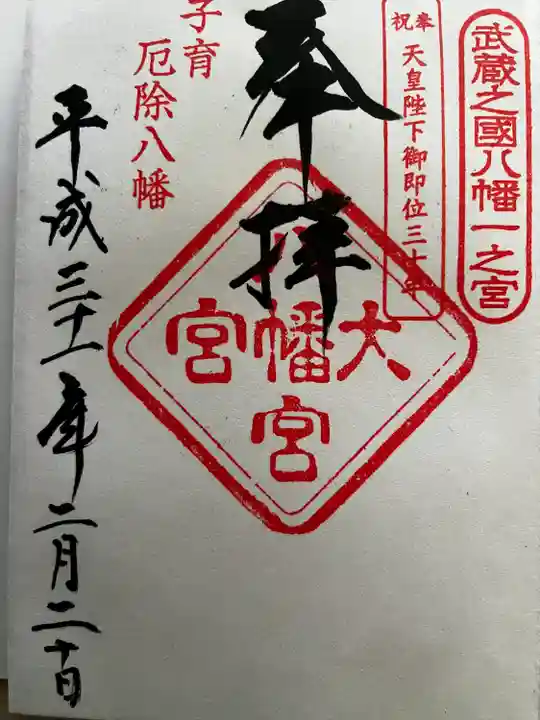 武蔵之國八幡一之宮
奉祝
天皇陛下御即位三十年
奉拝
大宮
八幡宮
子育
厄除八幡
平成三十一年二月二十日